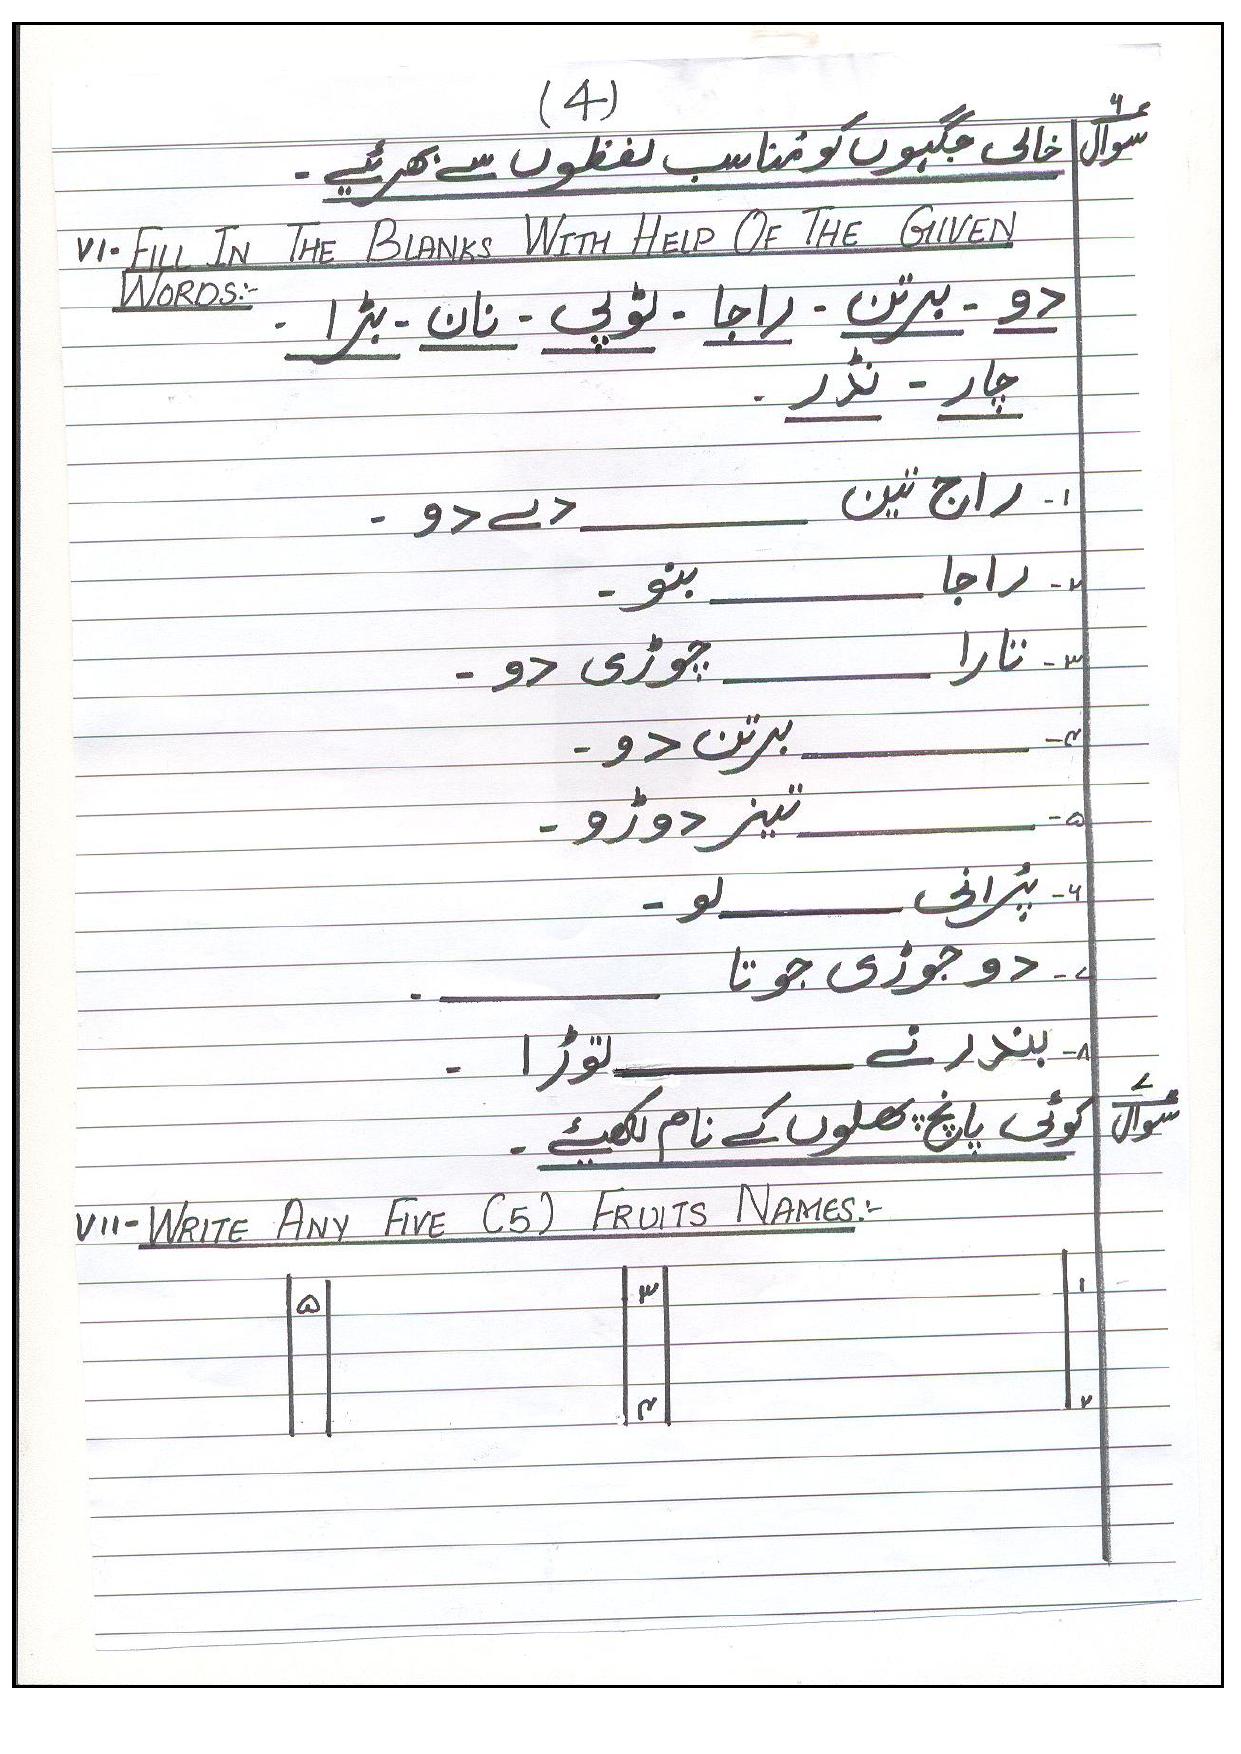 (4)
سوال ۶ خالی جگہوں کو مُناسب لفظوں سے بھرئیے ۔
VI- FILL IN THE BLANKS WITH HELP OF THE GIVEN
WORDS:-
دو - برتن - راجا - ٹوپی - نان - بڑا -
چار - نڈر -
۱- راج تین ______ دے دو -
۲- راجا ______ بنو -
۳- تارا ______ چوڑی دو -
۴- ______ برتن دو -
۵- ______ تیز دوڑو -
۶- پُرانی ______ لو -
۷- دو جوڑی جوتا ______ -
۸- بندر نے ______ توڑا -
سُوال ۷ کوئی پانچ پھلوں کے نام لکھیئے -
VII- WRITE ANY FIVE (5) FRUITS NAMES:-
۱ ۳ ۵
۲ ۴